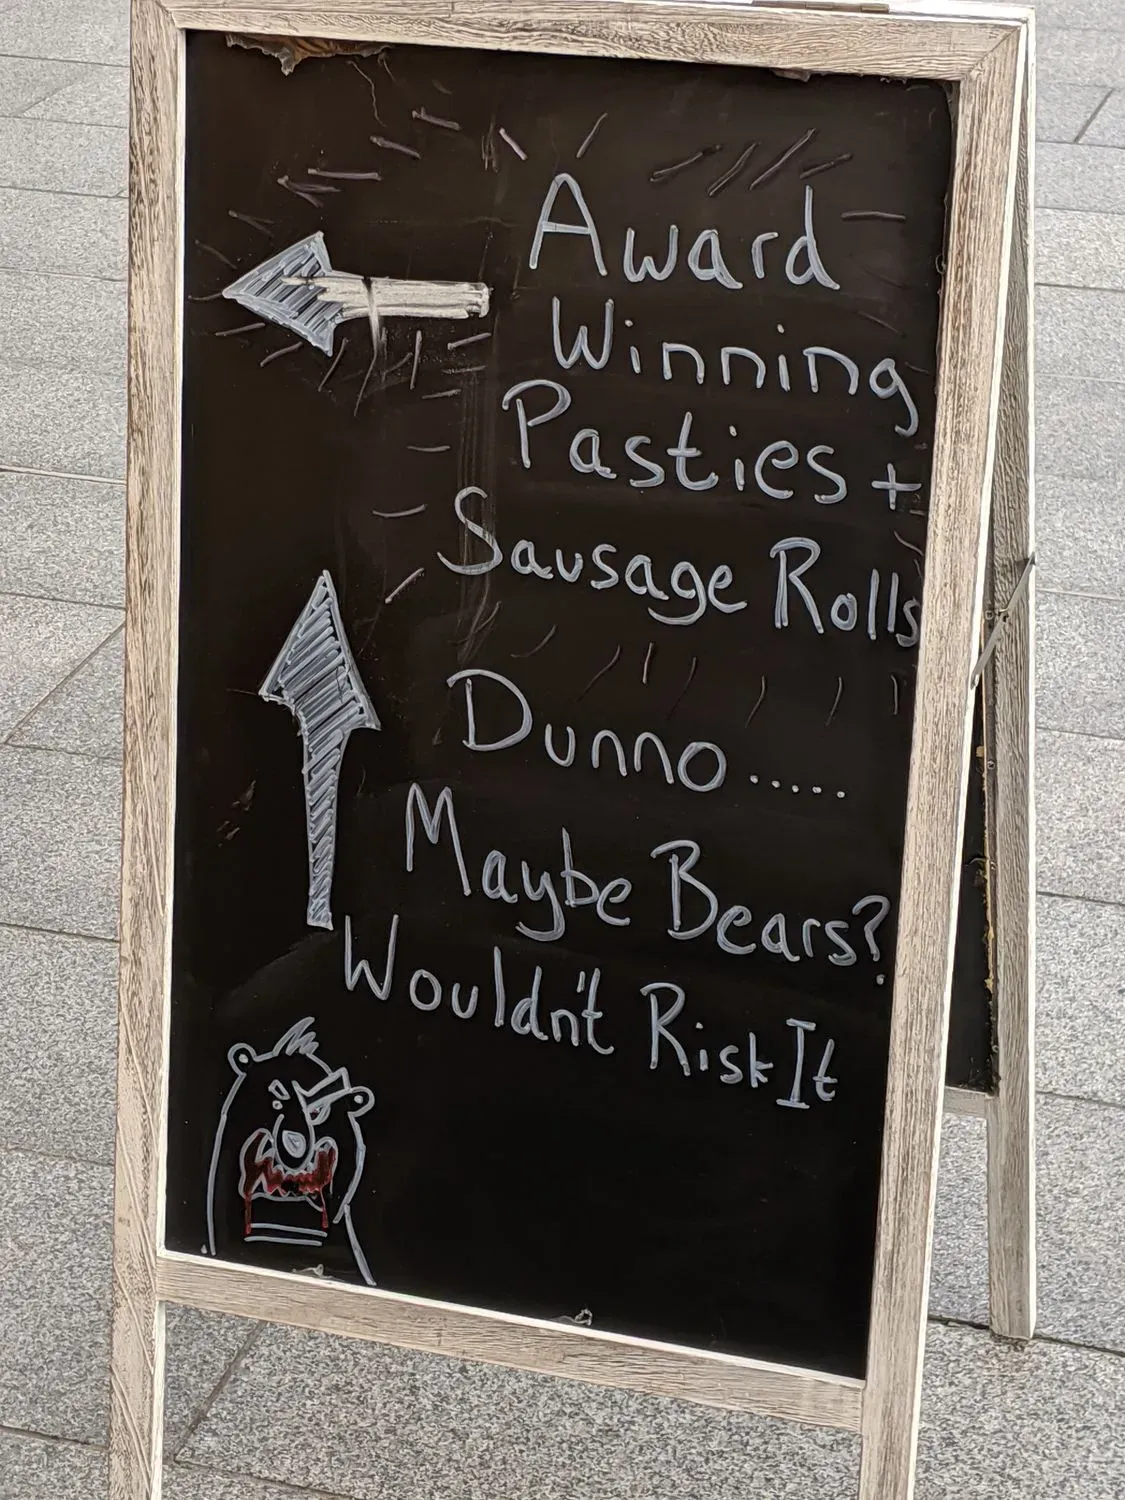 Award
Winning
Pasties +
Sausage Rolls
Dunno.....
Maybe Bears?
Wouldn't Risk It